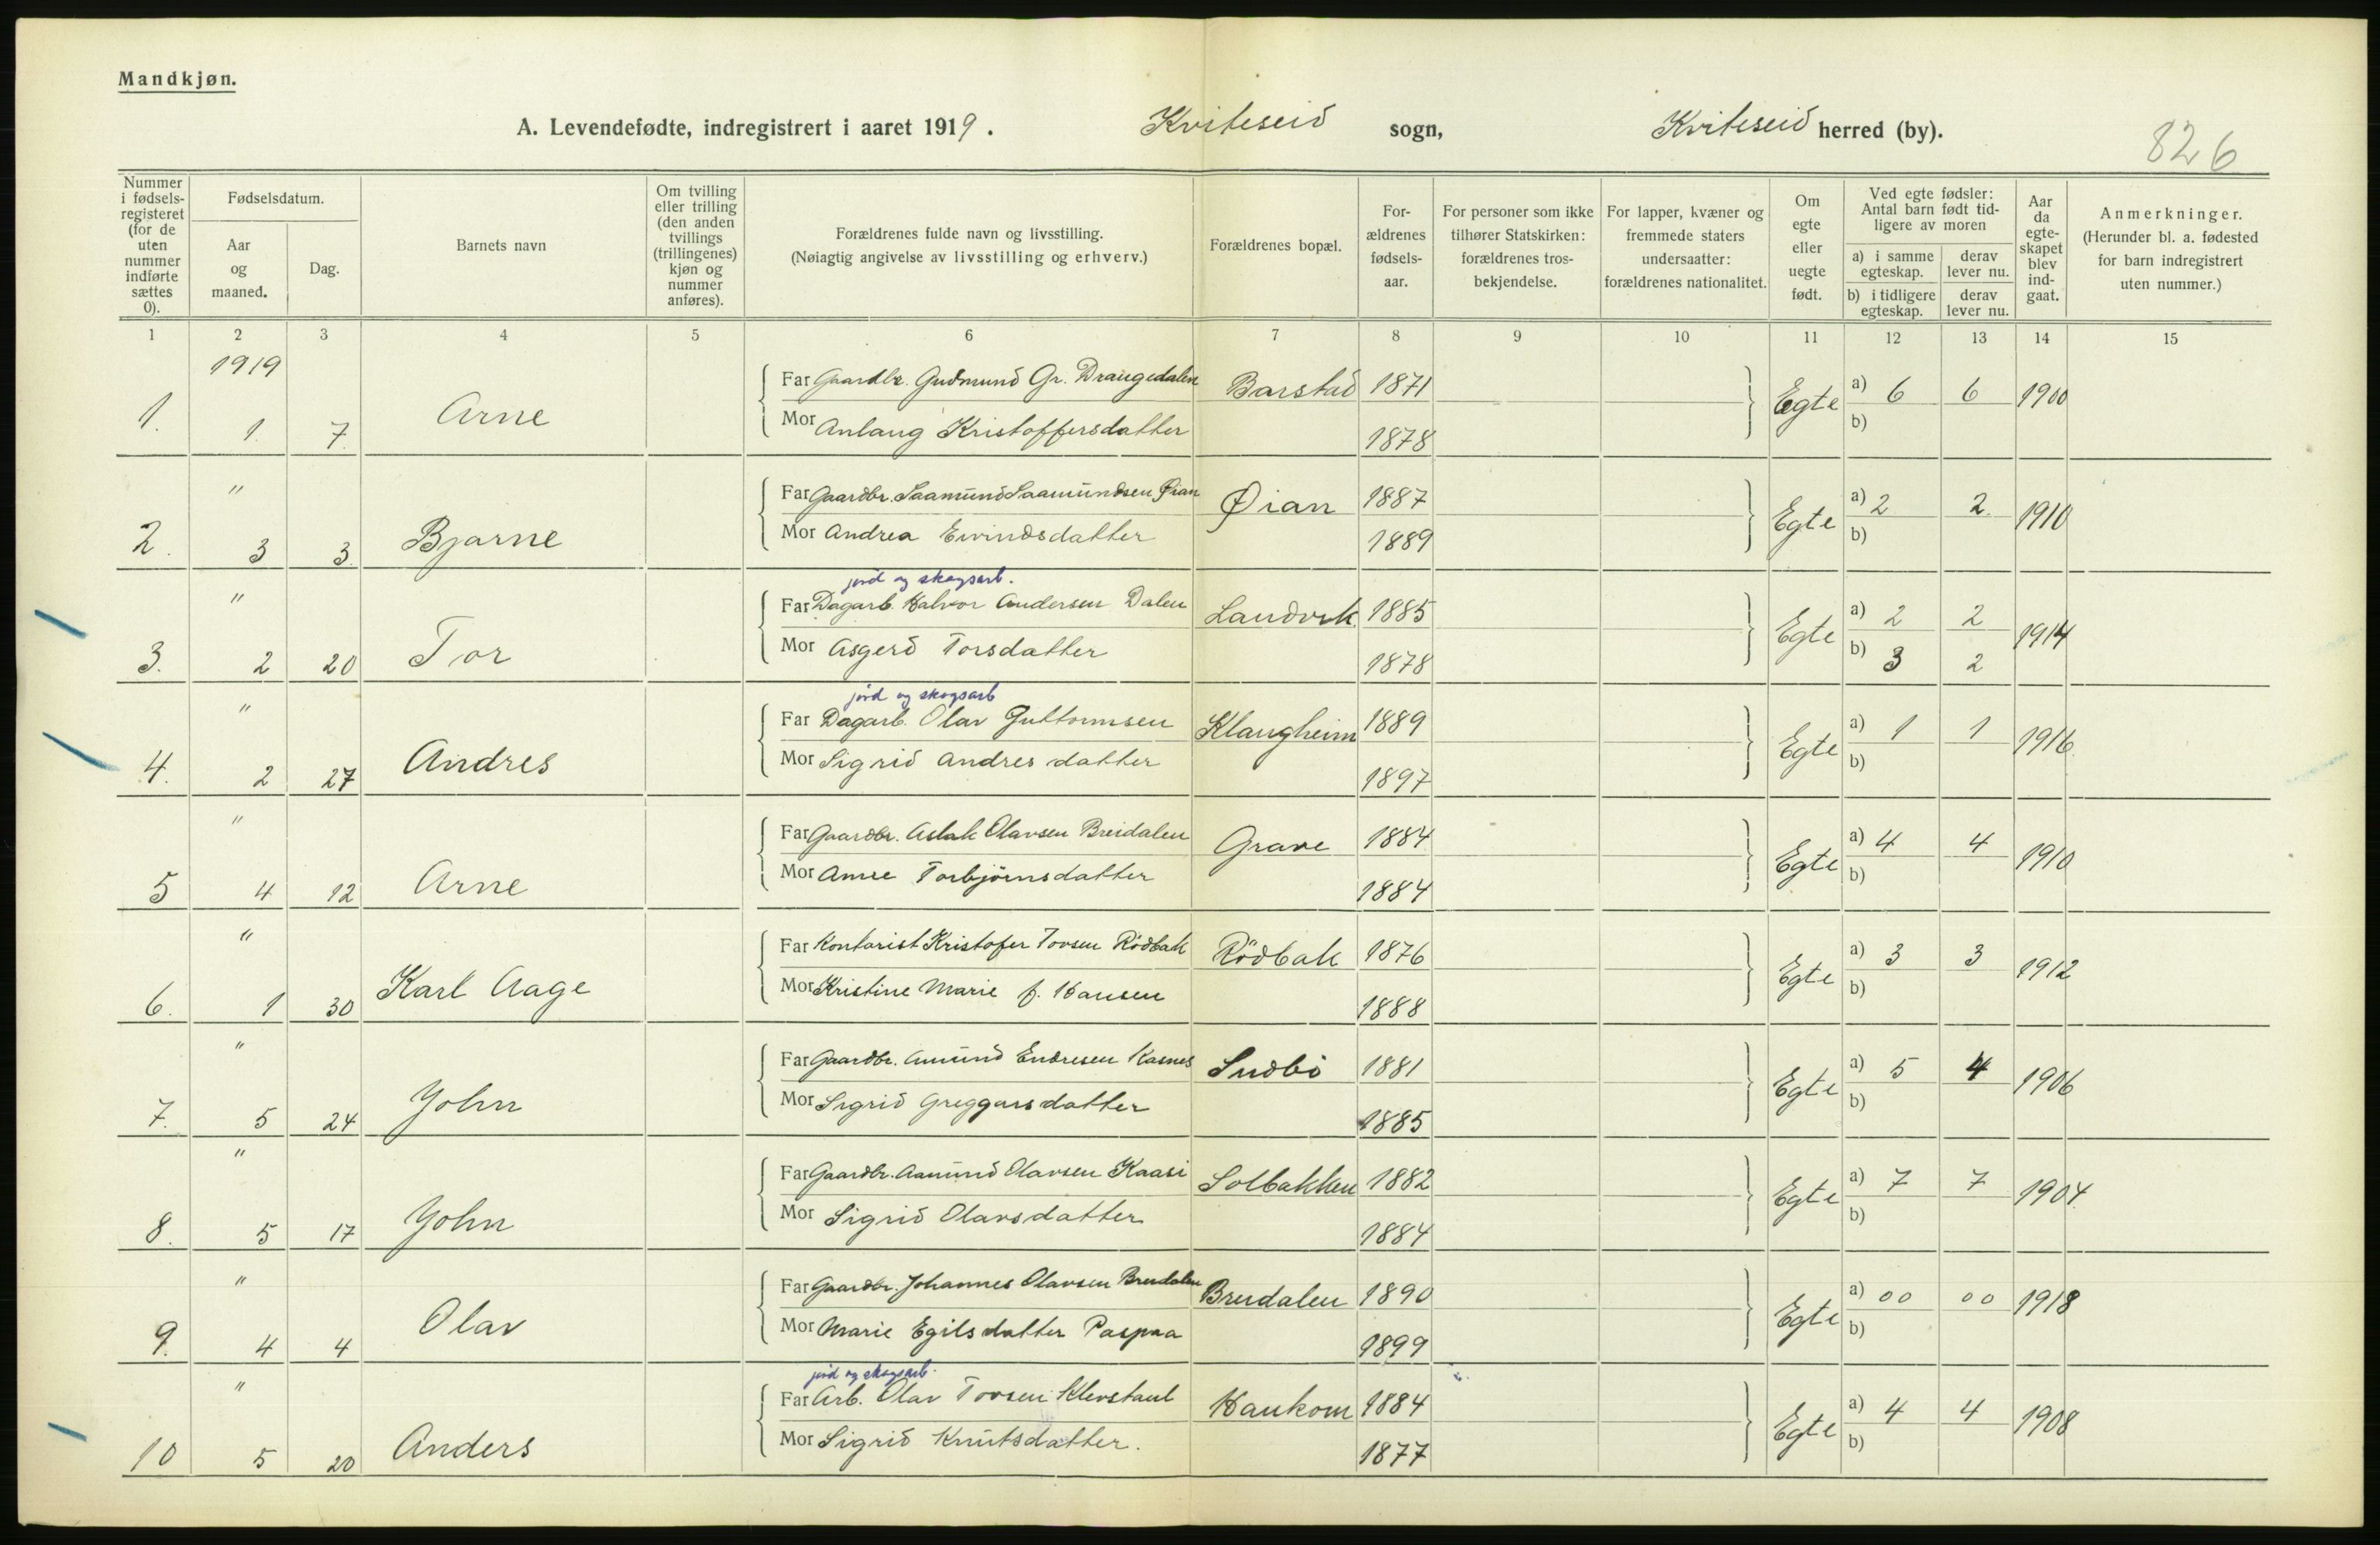 Mandkjøn.
A. Levendefødte, indregistrert i aaret 1919. Kviteseid sogn, Kviteseid herred (by).
826
Nummer i fødsels-registeret (for de uten nummer indførte sættes 0).
Fødselsdatum.
Aar og maaned.
Dag.
Barnets navn
Om tvilling eller trilling (den anden tvillings (trillingenes) kjøn og nummer anføres).
Forældrenes fulde navn og livsstilling.
(Nøiagtig angivelse av livsstilling og erhverv.)
Forældrenes bopæl.
For-ældrenes fødsels-aar.
For personer som ikke tilhører Statskirken: forældrenes tros-bekjendelse.
For lapper, kvæner og fremmede staters undersaatter: forældrenes nationalitet.
Om egte eller uegte født.
Ved egte fødsler: Antal barn født tid-ligere av moren
a) i samme egteskap. derav lever nu.
b) i tidligere egteskap. derav lever nu.
Aar da egte-skapet blev ind-gaat.
Anmerkninger.
(Herunder bl. a. fødested for barn indregistrert uten nummer.)
1 2 3 4 5 6 7 8 9 10 11 12 13 14 15
1919
1. 1. 7. Arne
Far Gaardbr. Gudmund Gr. Draugedalen Barstad 1871 Egte a) 6 6 1900
Mor Anlaug Kristoffersdatter 1878 b)
"
2. 3 3. Bjarne
Far Gaardbr. Saamund Saamundsen Øian Øian 1887 Egte a) 2 2. 1910
Mor Andrea Eivindsdatter 1889 b)
jord og skogsarb.
"
3. 2 20 Tor
Far Dagarb. Halvor Andersen Dalen Landvik 1885 Egte a) 2 2 1914
Mor Asgerd Torsdatter 1878 b) 3 2
jord og skogsarb
"
4. 2 27 Andres
Far Dagarb. Olav Guttormsen Klaugheim 1889 Egte a) 1 1 1916.
Mor Sigrid Andresdatter 1897 b)
"
5 4 12 Arne
Far Gaardbr. Aslak Olavsen Breidalen Grave 1884 Egte a) 4 4 1910
Mor Anne Torbjörnsdatter 1884 b)
"
6. 1 30 Karl Aage
Far Kontorist Kristofer Tovsen Rödbak Rödbak 1876 Egte a) 3 3 1912
Mor Kristine Marie f. Hansen 1888 b)
"
7. 5 24 John
Far Gaardbr. Amund Endresen Sudbö 1881 Egte a) 5 4 1906
Mor Sigrid Greggarsdatter 1885 b)
"
8. 5 17 John
Far Gaardbr. Aamund Olavsen Kaasi Solbakken 1882 Egte a) 7 7 1904.
Mor Sigrid Olavsdatter 1884 b)
"
9. 4 4 Olav
Far Gaardbr. Johannes Olavsen Breidalen Breidalen 1890 Egte a) 00 00 1918
Mor Marie Egilsdatter Paspaa 1899 b)
jord og skogsarb.
"
10 5 20 Anders
Far Arb. Olav Tovsen Klevstaul Haukom 1884 Egte a) 4 4 1908
Mor Sigrid Knutsdatter. 1877 b)